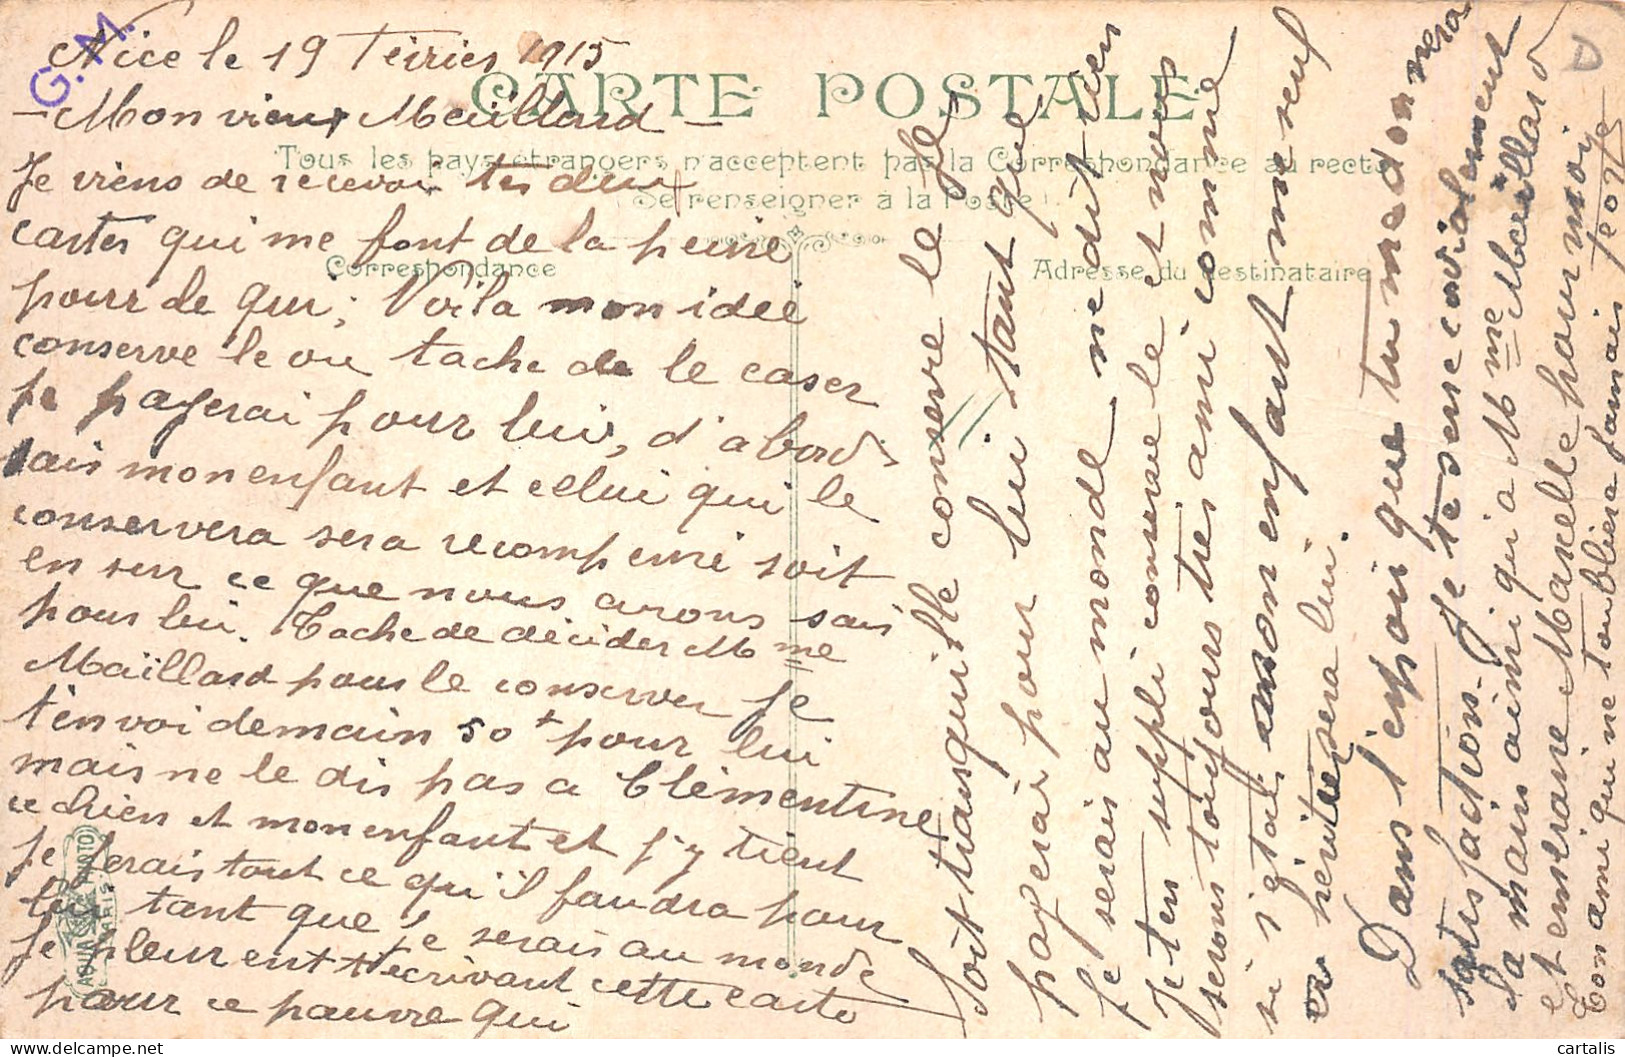 G.M.
Nice le 19 Février 1915
CARTE POSTALE
- Mon vieux Maïllard -
Tous les pays étrangers n'acceptent pas la Correspondance au recto
Se renseigner à la Poste
Je viens de recevoir tes deux
cartes qui me font de la peine
Correspondance
Adresse du Destinataire
pour de qui; Voila mon idée
conserve le ou tache de le caser
Je payerai pour lui, d'abord
sais mon enfant et celui qui le
conservera sera recompensé soit
en sur ce que nous avons sais
pour lui. Tache de décider Mme
Maïllard pour le conserver Je
t'envoi demain 50 pour lui
mais ne le dis pas a Clémentine
ce chien et mon enfant et j'y tient
Je ferais tout ce qu'il faudra pour
lui tant que je serais au monde
Je pleur ent t'écrivant cette carte
pour ce pauvre qui
AQUA PHOTO
PARIS
Soit tranquille conserve le Je
payerai pour lui tant que
Je serais au monde ne dit rien
Je ten suppli conserve le et nous
serons toujours tres ami comme
si s'etait mon enfant une seul
héritié sera lui.
Dans l'espoir que tu me donnera
satisfaction. Je te serre cordialement
la main ainsi qu'i a Mme Maïllard
et embrasse Marcelle pour moi
Ton ami qui ne toubliera jamais
D
cartalis